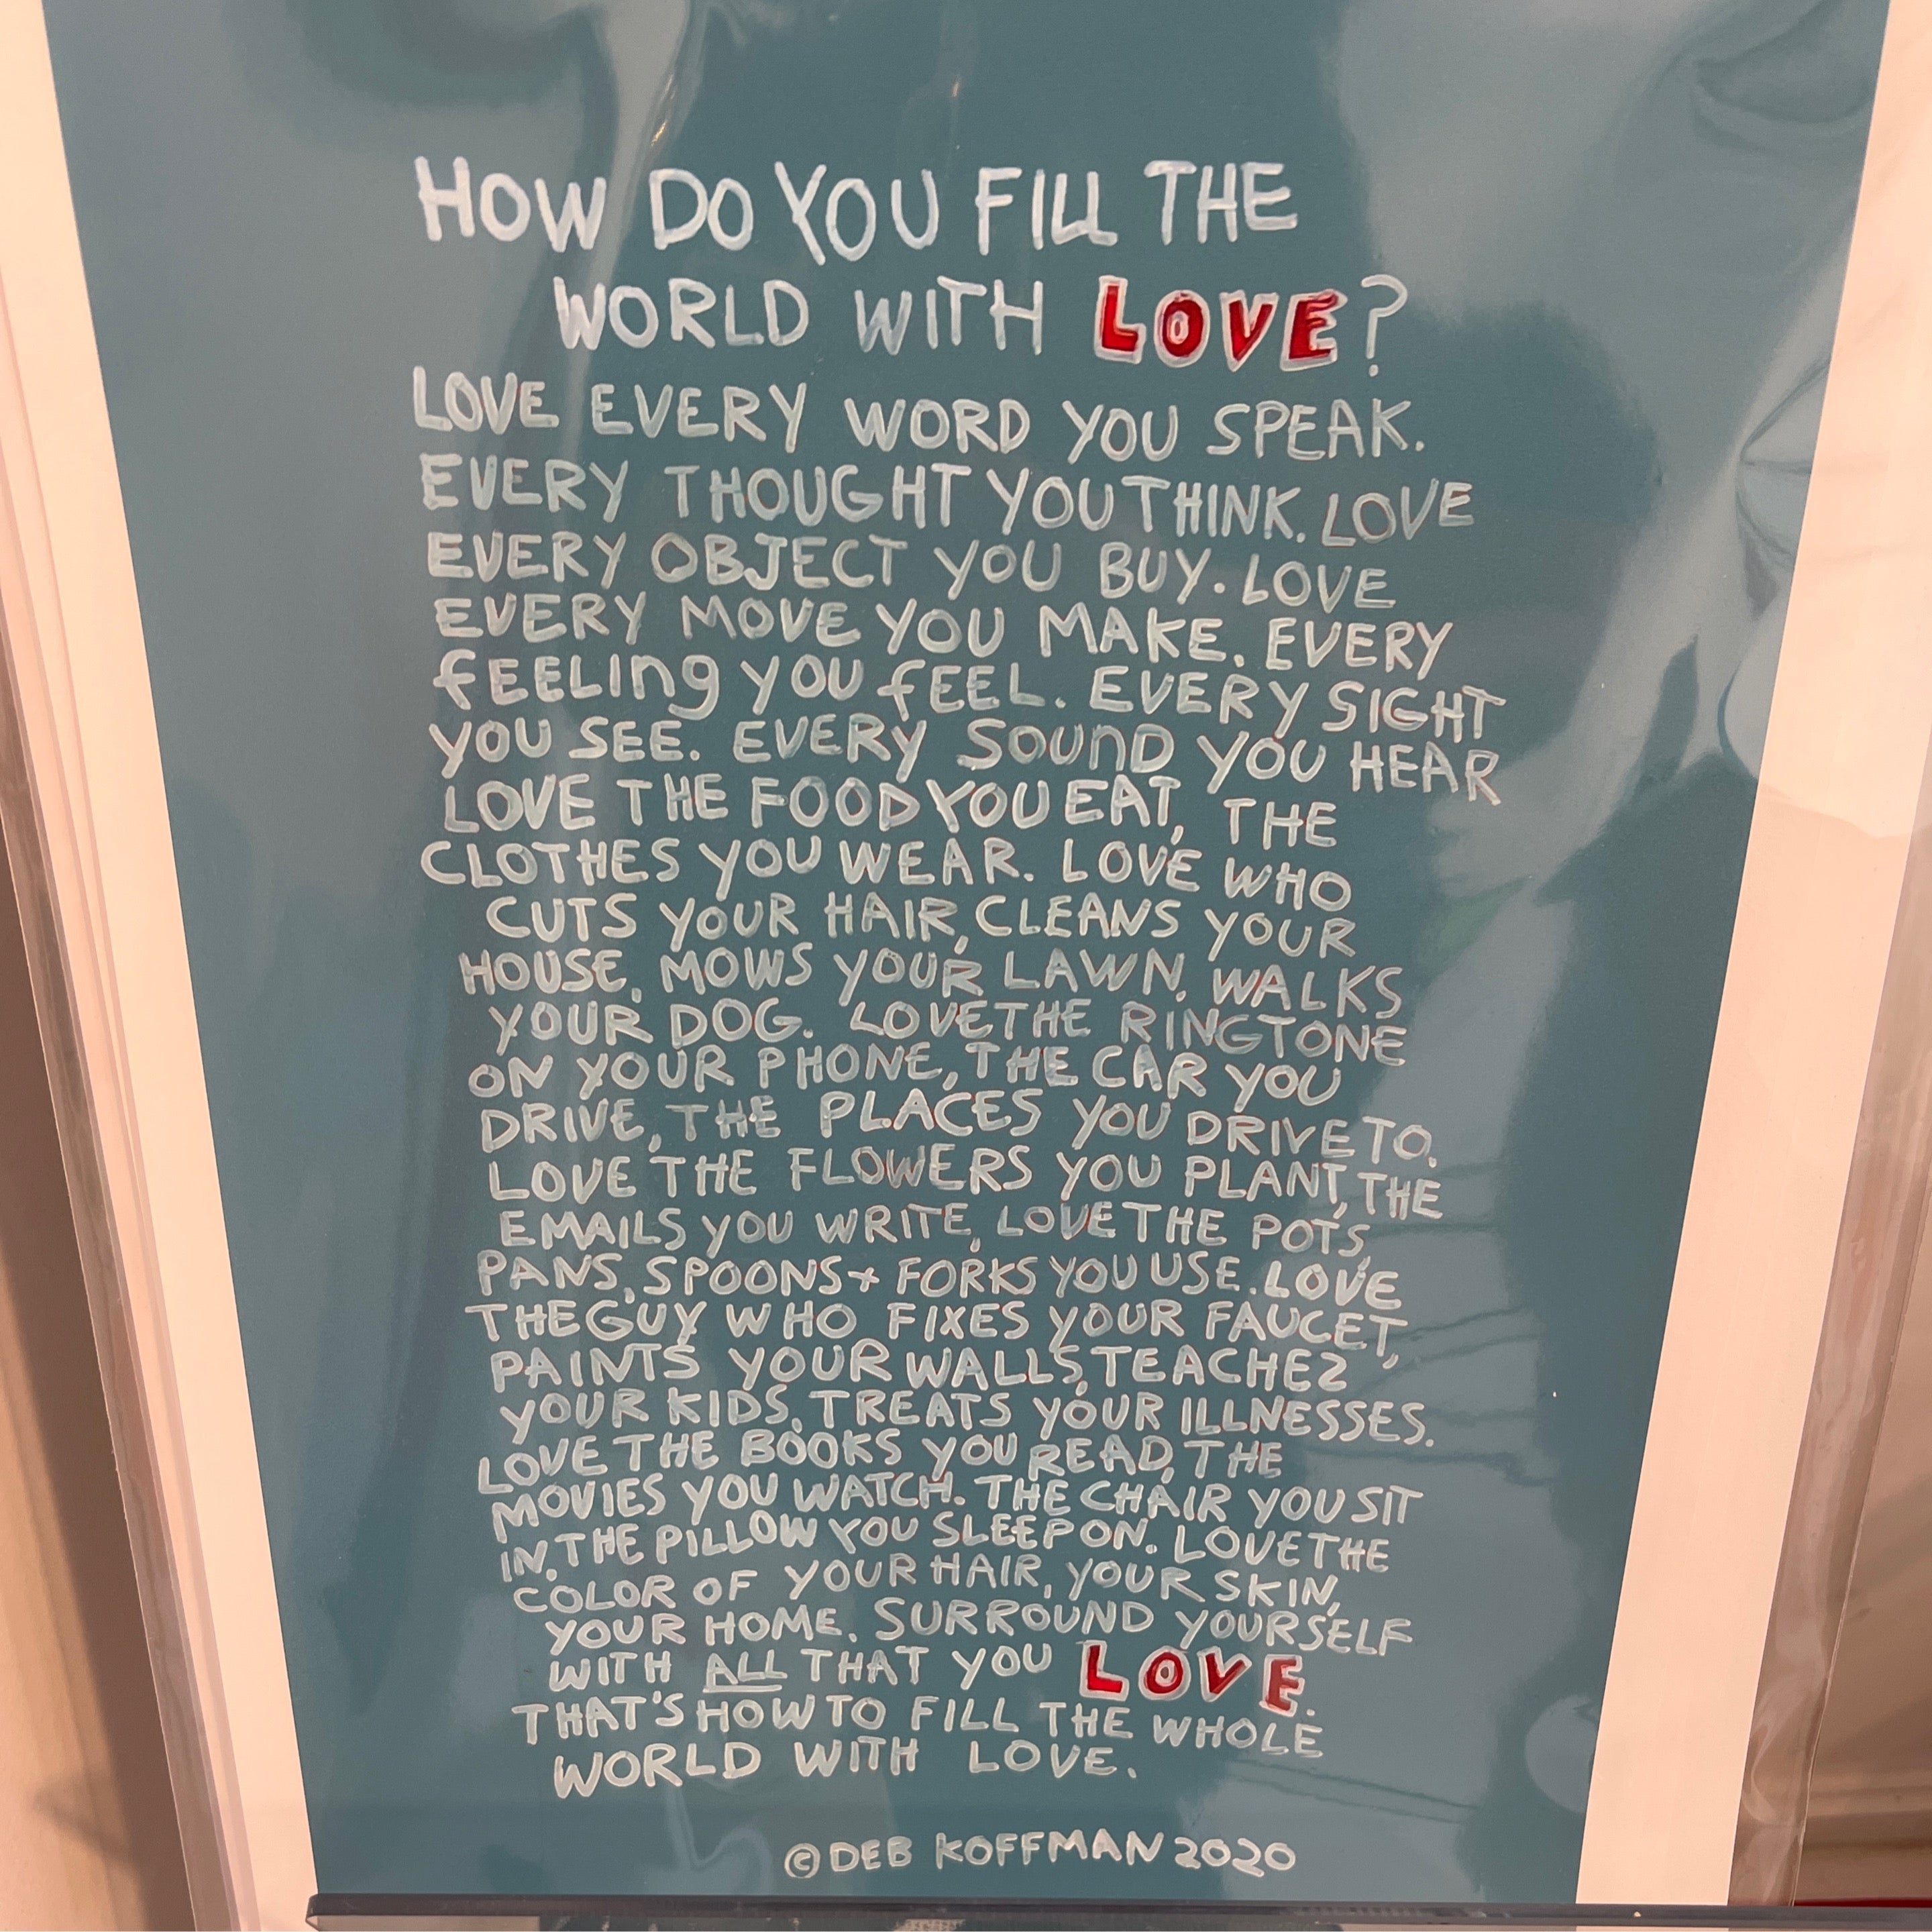 HOW DO YOU FILL THE
WORLD WITH LOVE?
LOVE EVERY WORD YOU SPEAK.
EVERY THOUGHT YOU THINK. LOVE
EVERY OBJECT YOU BUY. LOVE
EVERY MOVE YOU MAKE. EVERY
FEELING YOU FEEL. EVERY SIGHT
YOU SEE. EVERY SOUND YOU HEAR
LOVE THE FOOD YOU EAT, THE
CLOTHES YOU WEAR. LOVE WHO
CUTS YOUR HAIR, CLEANS YOUR
HOUSE, MOWS YOUR LAWN, WALKS
YOUR DOG. LOVE THE RINGTONE
ON YOUR PHONE, THE CAR YOU
DRIVE, THE PLACES YOU DRIVE TO.
LOVE THE FLOWERS YOU PLANT, THE
EMAILS YOU WRITE, LOVE THE POTS,
PANS, SPOONS + FORKS YOU USE. LOVE
THE GUY WHO FIXES YOUR FAUCET,
PAINTS YOUR WALLS, TEACHES
YOUR KIDS, TREATS YOUR ILLNESSES.
LOVE THE BOOKS YOU READ, THE
MOVIES YOU WATCH. THE CHAIR YOU SIT
IN. THE PILLOW YOU SLEEP ON. LOVE THE
COLOR OF YOUR HAIR, YOUR SKIN,
YOUR HOME. SURROUND YOURSELF
WITH ALL THAT YOU LOVE.
THAT'S HOW TO FILL THE WHOLE
WORLD WITH LOVE.
© DEB KOFFMAN 2020